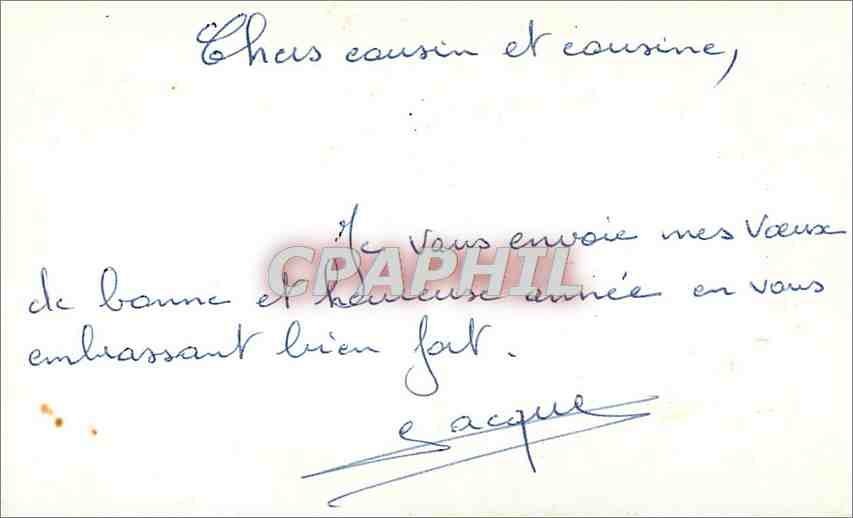 Chers cousin et cousine,
Je vous envoie mes vœux
CPAPHIL
de bonne et heureuse année en vous
embrassant bien fort.
Jacque